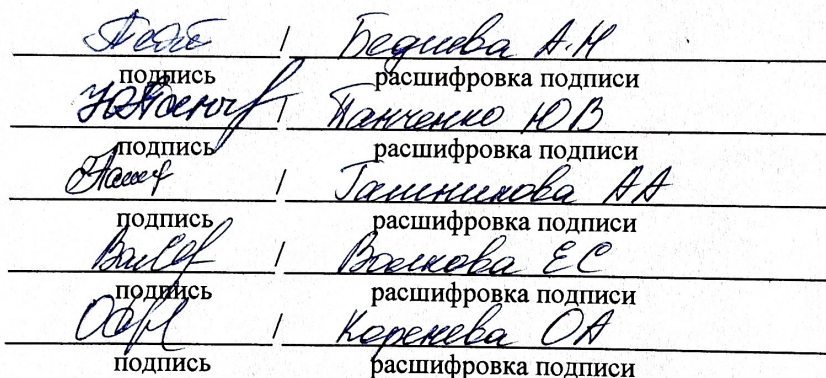 / Беднева А.Н
подпись расшифровка подписи
/ Панченко Ю В
подпись расшифровка подписи
/ АА
подпись расшифровка подписи
/ Волкова ЕС
подпись расшифровка подписи
/ Коренева ОА
подпись расшифровка подписи